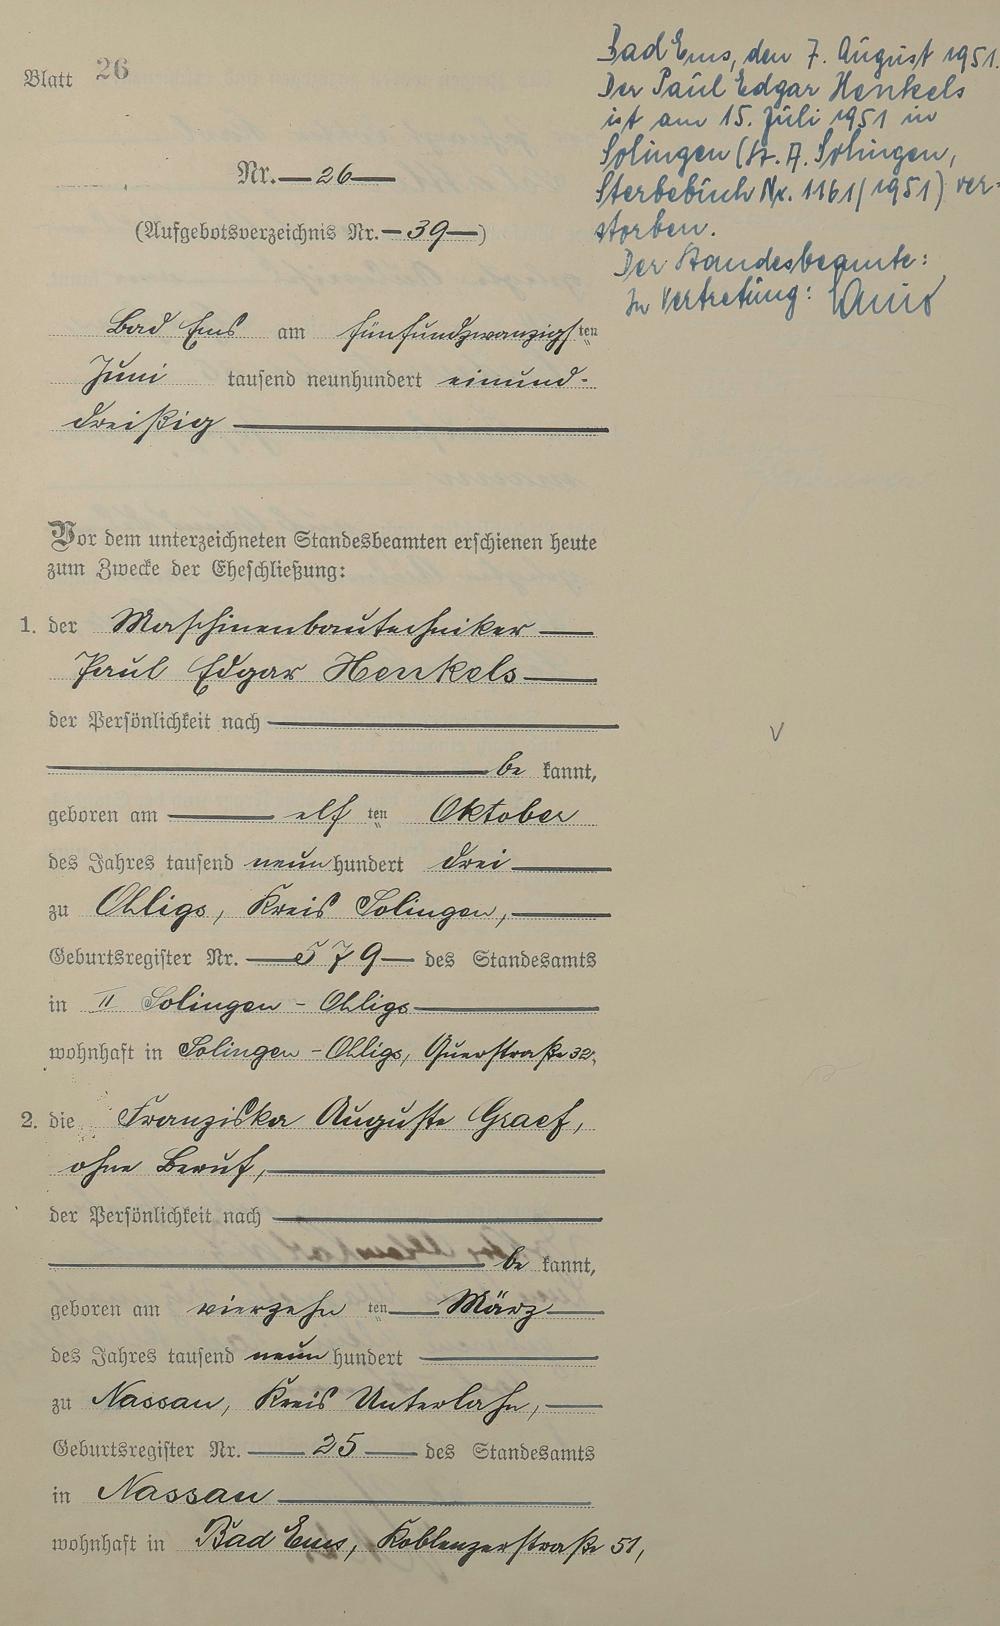 Blatt 26
Bad Ems, den 7. August 1951.
Der Paul Edgar Henkels
ist am 15. Juli 1951 in
Solingen (St. A. Solingen,
Sterbebuch Nr. 1161/1951) ver-
storben.
Der Standesbeamte:
In Vertretung:
Nr. 26
(Aufgebotsverzeichnis Nr. 39)
Bad Ems am fünfundzwanzigsten
Juni tausend neunhundert einund-
dreißig
Vor dem unterzeichneten Standesbeamten erschienen heute
zum Zwecke der Eheschließung:
1. der Maschinenbautechniker
Paul Edgar Henkels
der Persönlichkeit nach
be kannt,
geboren am elf ten Oktober
des Jahres tausend neun hundert drei
zu Ohligs, Kreis Solingen,
Geburtsregister Nr. 579 des Standesamts
in II Solingen - Ohligs
wohnhaft in Solingen - Ohligs, Querstraße 32,
2. die Franziska Auguste Graef,
ohne Beruf,
der Persönlichkeit nach
be kannt,
geboren am vierzehn ten März
des Jahres tausend neun hundert
zu Nassau, Kreis Unterlahn,
Geburtsregister Nr. 25 des Standesamts
in Nassau
wohnhaft in Bad Ems, Koblenzerstraße 51,